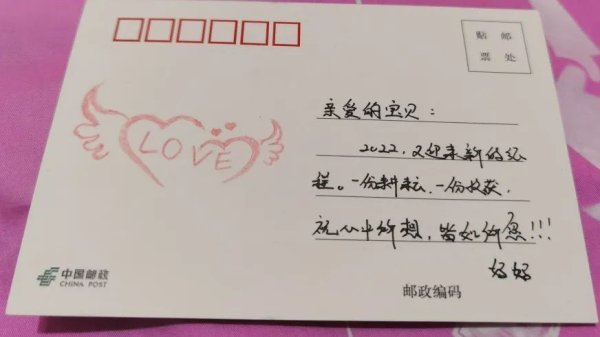 贴 邮
票 处
亲爱的宝贝：
2022，又迎来新的征
程。一份耕耘，一份收获，
祝心中所想，皆如你愿!!!
妈妈
LOVE
中国邮政
CHINA POST
邮政编码